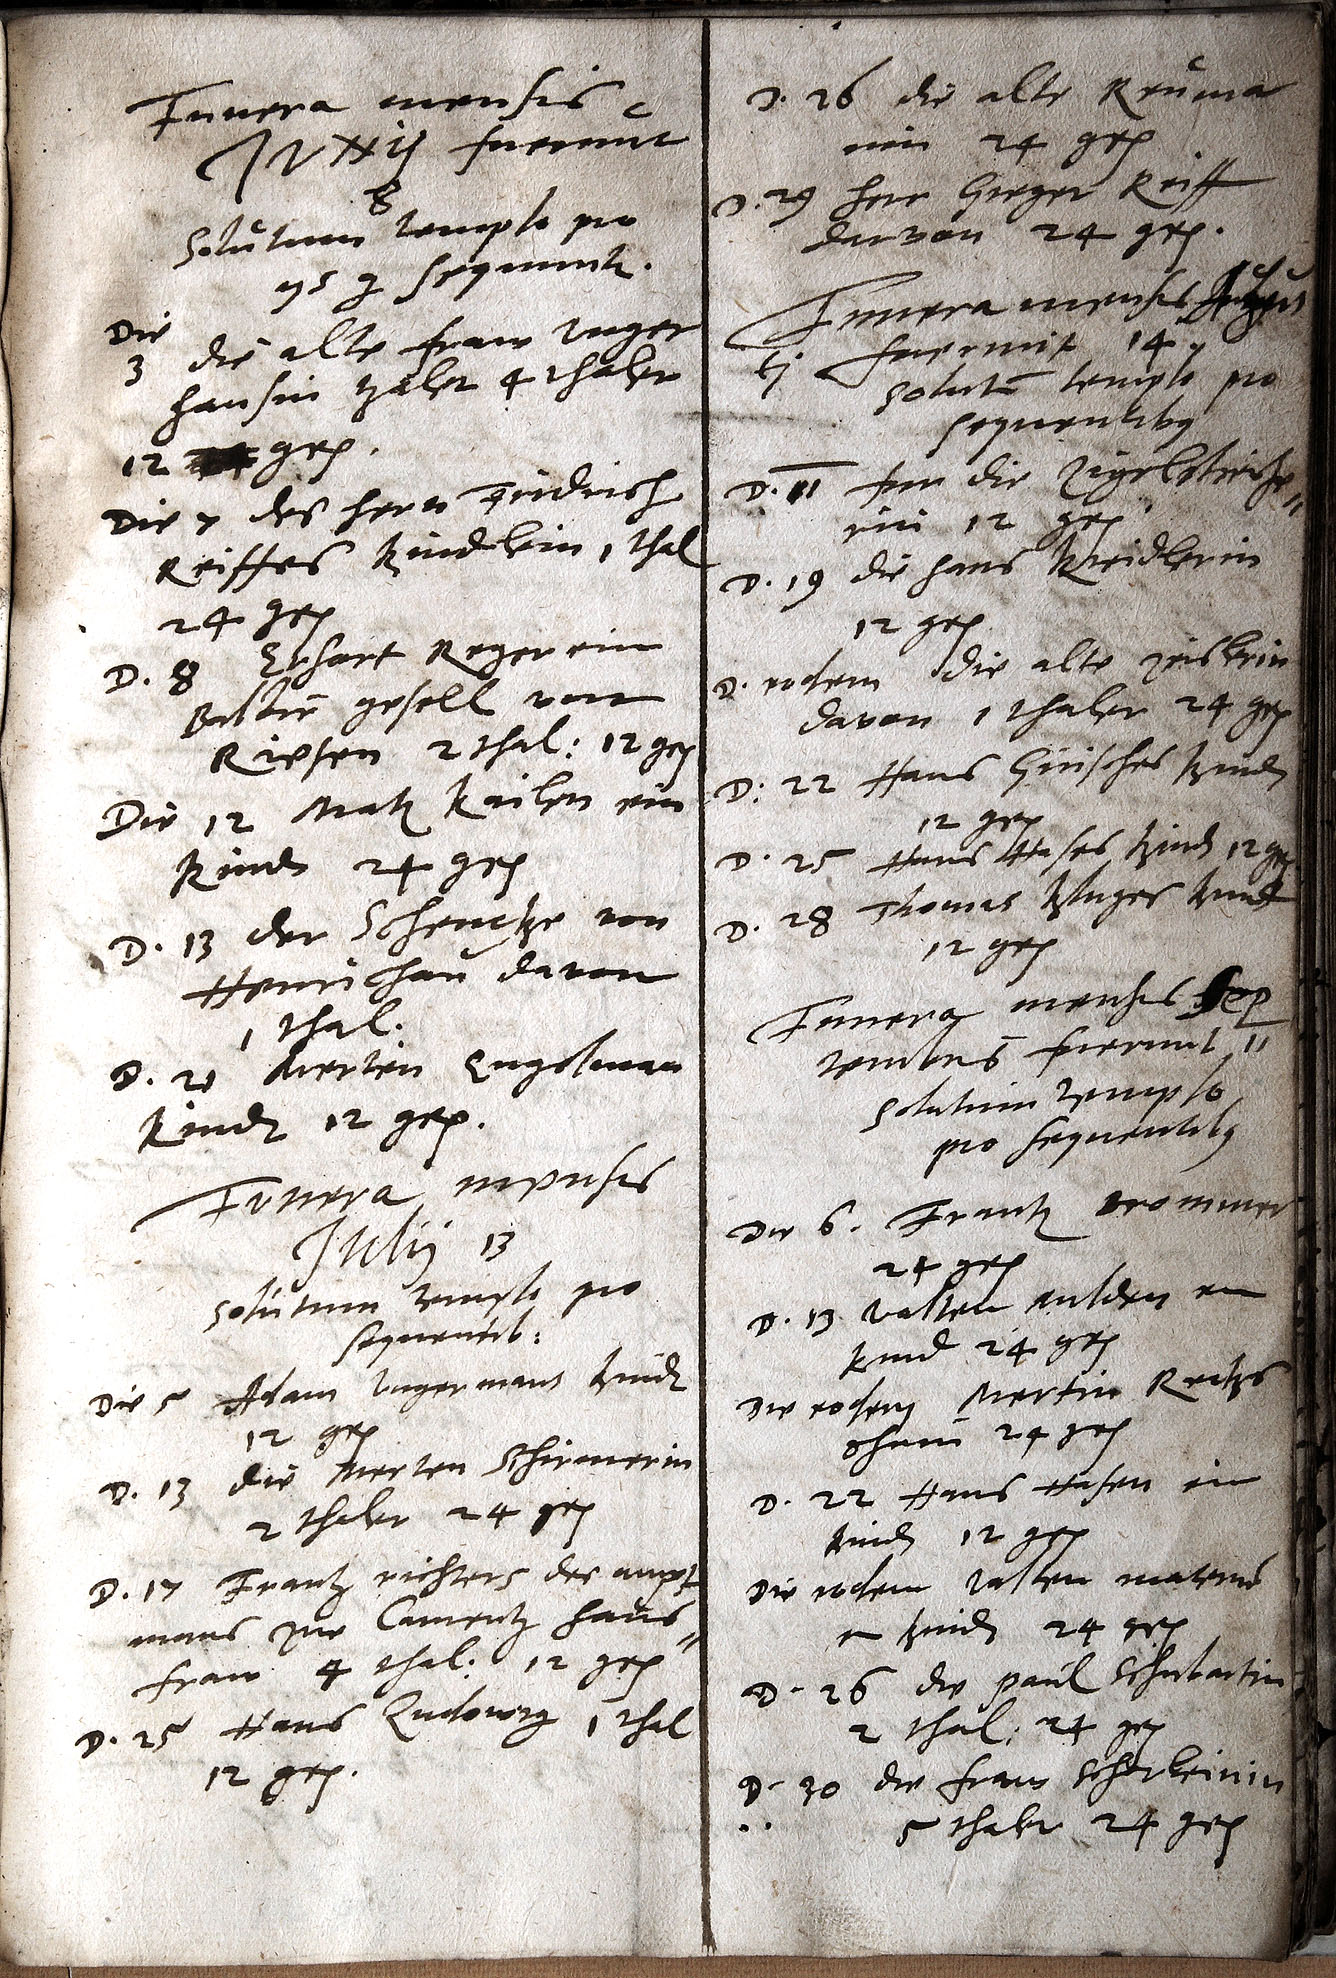 Funera mensis
Junii fuerunt
8
Solutum templo pro
ys q sequunt.
Die
3 die alte fraw Unger
hansin zalet 4 thaler
12 gr.
Die 7 des hern Fridrich
Reiffes kindlein 1 thal
24 gr
D. 8 Erhart Reger ein
gesell von
Riesen 2 thal: 12 gr
Die 12 Matz Kailen ein
kindt 24 gr
D. 13 der Schencke von
Heinrichaŭ davon
1 thal.
D. 21 Merten Engelman
kindt 12 gr.
Funera mensis
Julij 13
Solutum templo pro
sequentib:
Die 5 Adam Ungermans kindt
12 gr
D. 13 die Merten Schirmerin
2 thaler 24 gr
D. 17 Frantz richters des ampt
mans zur Camentz haus„
fraw 4 thal: 12 gr
D. 25 Hans Ludowig 1 thal
12 gr.
D. 26 die alte Reŭma
nin 24 gr
D. 29 herr Greger Reiff
darvon 24 gr.
Funera mensis
fuerunt 14
solutū templo pro
sequentibq
D. 11 für die
rin 12 gr
D. 19 die hans Kreidlerin
12 gr
D. eodem die alte
davon 1 thaler 24 gr
D: 22 Hans Hirsches kindt
12 gr
D. 25 Hans Hases kindt 12 gr
D. 28 Thomas Kluges kindt
12 gr
Funera mensis Sep
tembris fuerunt 11
Solutum templo
pro sequentibq
Die 6. Frantz Krommer
24 gr
D. 13 Valten ein
kind 24 gr
Die eodem Mertin
24 gr
D. 22 Hans Hasen ein
kindt 12 gr
Die eodem Valten Materns
ein kindt 24 gr
D. 26 die Paŭl Schubartin
2 thal: 24 gr
D. 30 die fraw
5 thaler 24 gr